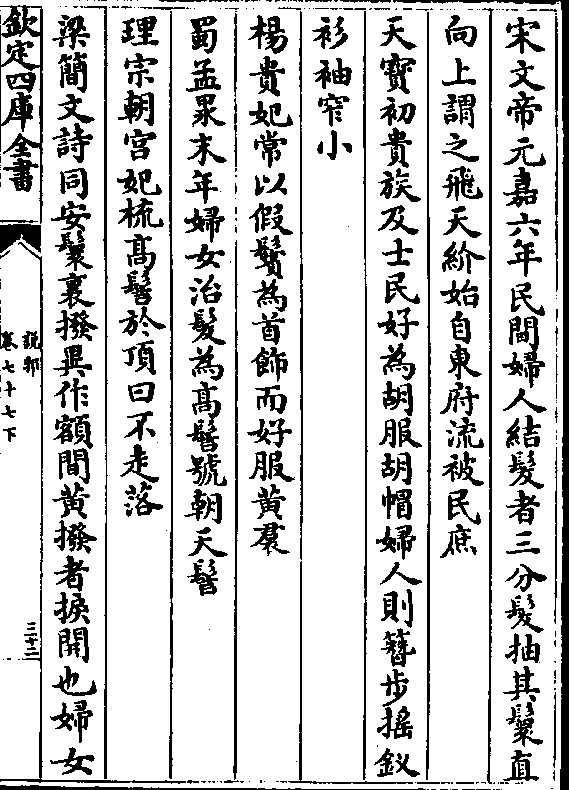 宋文帝元嘉六年民間婦人結髮者三分髮抽其鬟直
向上謂之飛天紒始自東府流被民庶
天寳初貴族及士民好為胡服胡帽婦人則簪步搖釵
衫袖窄小
楊貴妃常以假鬢為首飾而好服黄裙
蜀孟㫤末年婦女治髮為髙髻號朝天髻
理宗朝宫妃梳髙髻於頂曰不走落
梁簡文詩同安鬟裏撥異作額間黄撥者捩開也婦女
欽定四庫全書
說郛
卷七十七下
三十二